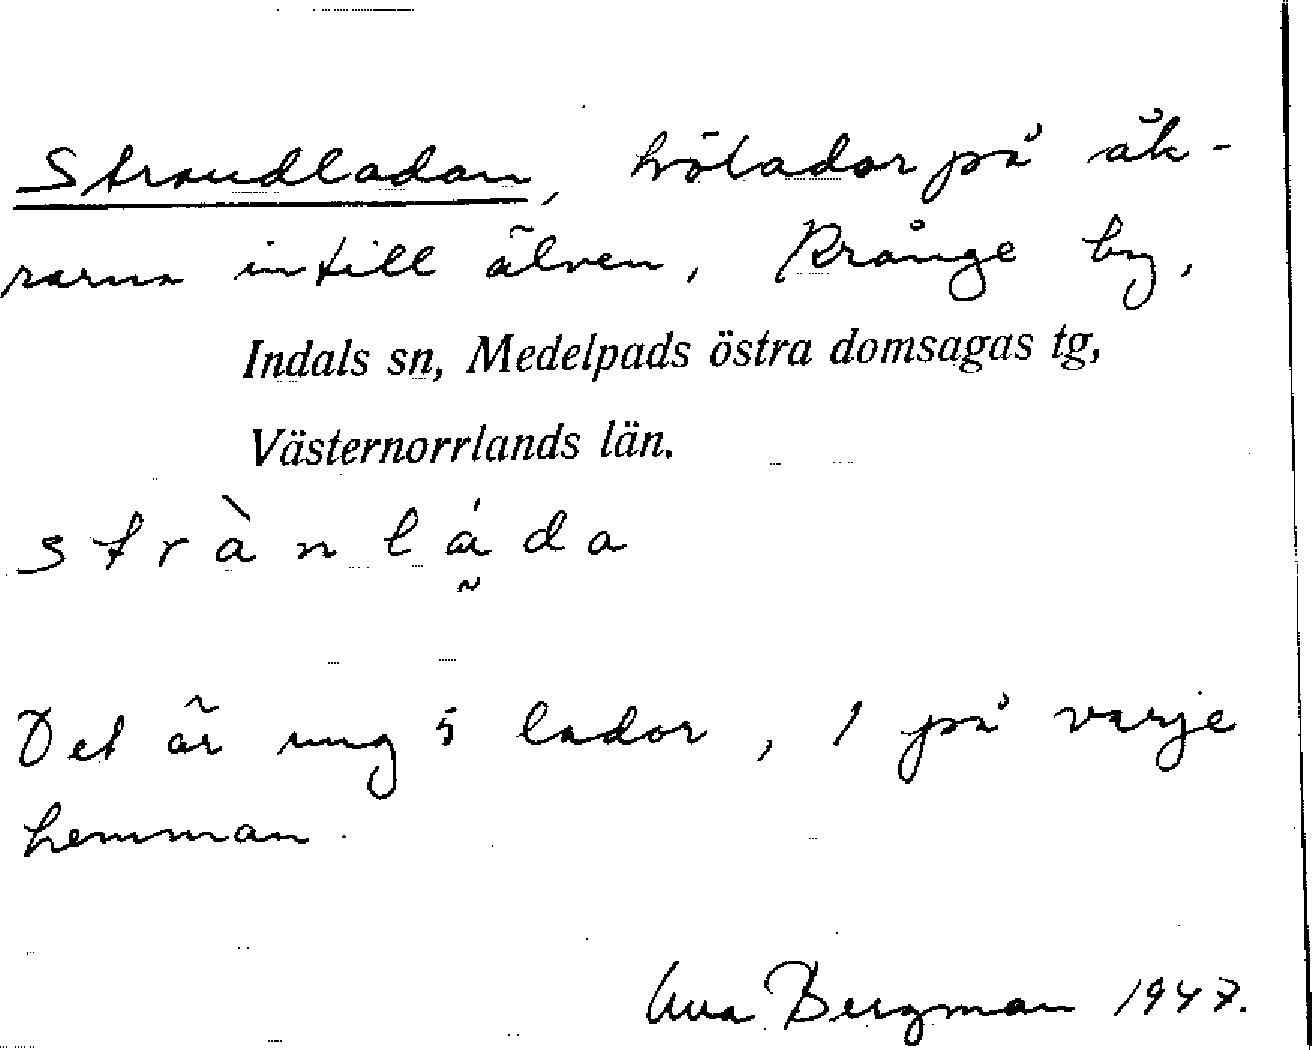 Strandladan, hölador på åk-
rarna intill älven, Krånge by,
Indals sn, Medelpads östra domsagas tg,
Västernorrlands län.
strànlá̰da
Det är ung 5 lador, 1 på varje
hemman.
Bergman 1947.